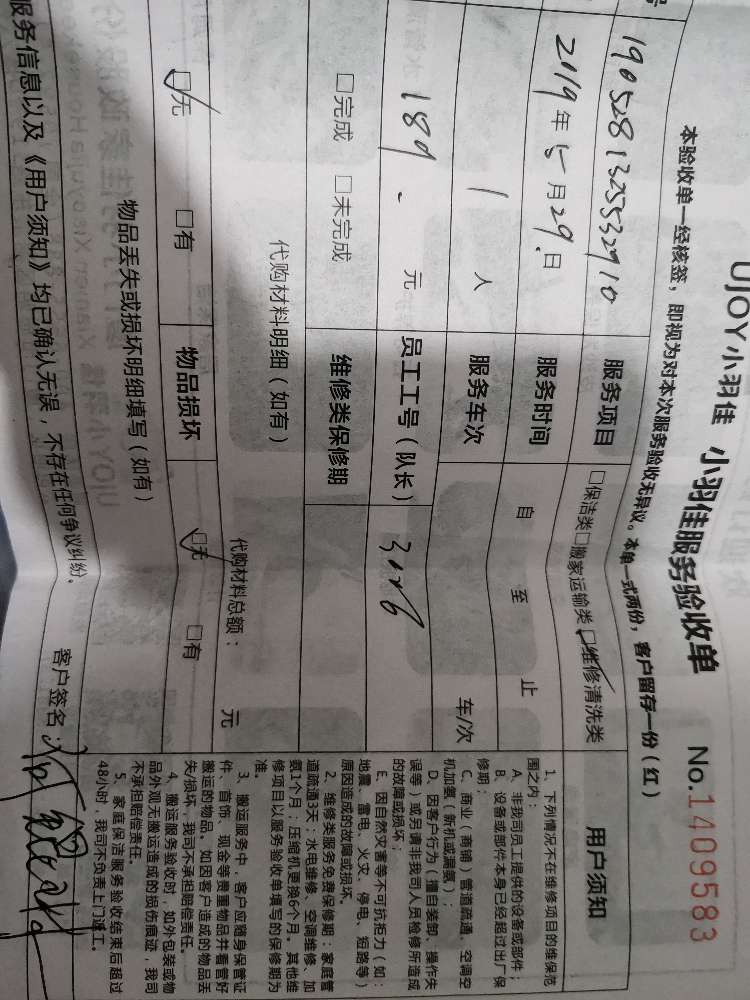 UJOY小羽佳 小羽佳服务验收单 No.1409583
本验收单一经核签，即视为对本次服务验收无异议。本单一式两份，客户留存一份（红）
1905281325532910 服务项目 □保洁类□搬家运输类☑维修清洗类
2019年5月29日 服务时间 自 至 止
1 人 服务车次 车/次
189. 元 员工工号（队长） 3026
□完成 □未完成 维修类保修期
代购材料明细（如有） 代购材料总额： 元
☑无 □有 物品损坏 ☑无 □有
物品丢失或损坏明细填写（如有）
服务信息以及《用户须知》均已确认无误，不存在任何争议纠纷。 客户签名：
用户须知
1、下列情况不在维修项目的维保范
围之内：
A、非我司员工提供的设备或部件；
B、设备或部件本身已经超过出厂保
修期；
C、商业（商铺）管道疏通、空调空
机加氨（新机或漏氨）；
D、因客户行为（擅自装卸、操作失
误等）或另请非我司人员检修所造成
的故障或损坏；
E、因自然灾害等不可抗拒力（如：
地震、雷电、火灾、停电、短路等）
原因造成的故障或损坏。
2、维修类服务免费保修期：家庭管
道疏通3天；水电维修、空调维修、加
氨1个月；压缩机更换6个月。其他维
修项目以服务验收单填写的保修期为
准。
3、搬运服务中，客户应随身保管证
件、首饰、现金等贵重物品并看管好
搬运的物品，如因客户造成的物品丢
失/损坏，我司不承担赔偿责任。
4、搬运服务验收时，如外包装或物
品外观无搬运造成的损伤痕迹，我司
不承担赔偿责任。
5、家庭保洁服务验收结束后超过
48小时，我司不负责上门返工。